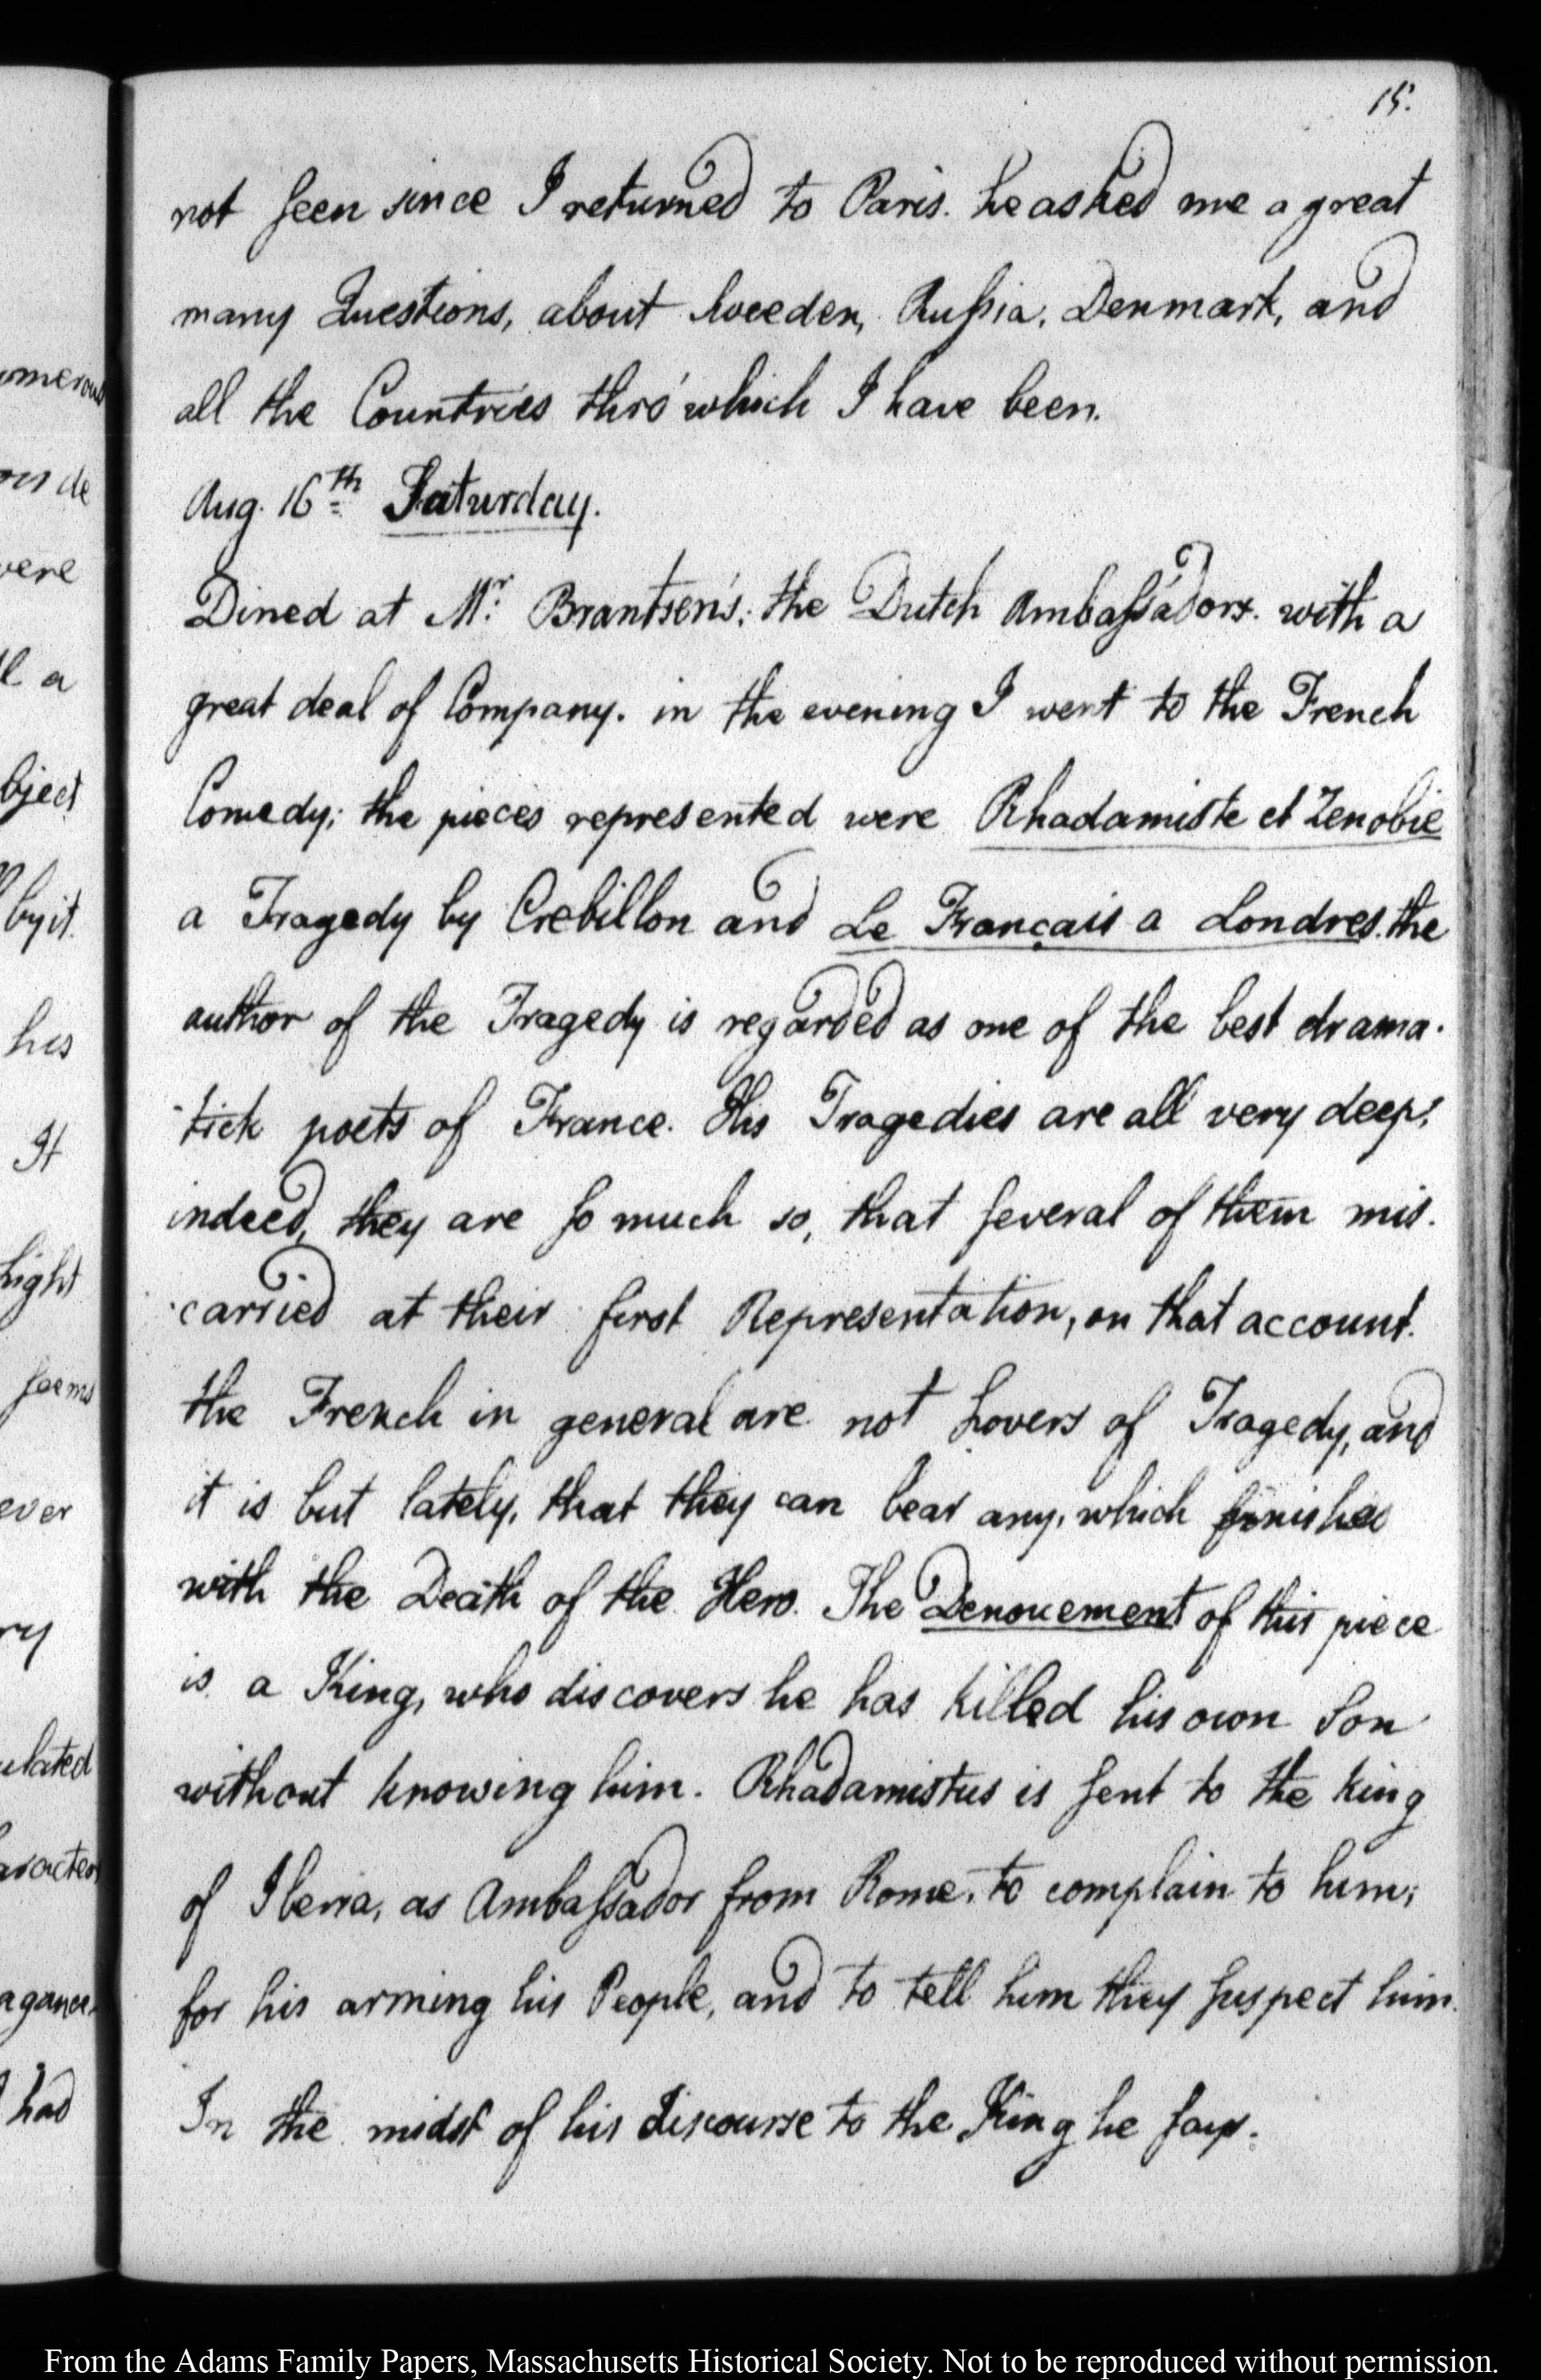 15.
not seen since I returned to Paris. he asked me a great
many Questions, about Sweeden, Russia, Denmark, and
all the Countries thro' which I have been.
Aug. 16th Saturday.
Dined at Mr. Brantsen's; the Dutch Ambassadors. with a
great deal of Company. in the evening I went to the French
Comedy; the pieces represented were Rhadamiste et Zenobie
a Tragedy by Crebillon and Le Français a Londres. the
author of the Tragedy is regarded as one of the best drama-
-tick poets of France. His Tragedies are all very deep;
indeed, they are so much so, that several of them mis-
-carried at their first Representation, on that account.
the French in general are not Lovers of Tragedy, and
it is but lately, that they can bear any, which finishes
with the Death of the Hero. The Denouement of this piece
is a King, who discovers he has killed his own Son
without knowing him. Rhadamistus is sent to the king
of Iberia, as Ambassador from Rome, to complain to him;
for his arming his People, and to tell him they suspect him.
In the midst of his discourse to the King he says.
ous de
vere
l a
bject
by it.
his
It
light
seems
ever
ry
ulated
had
From the Adams Family Papers, Massachusetts Historical Society. Not to be reproduced without permission.